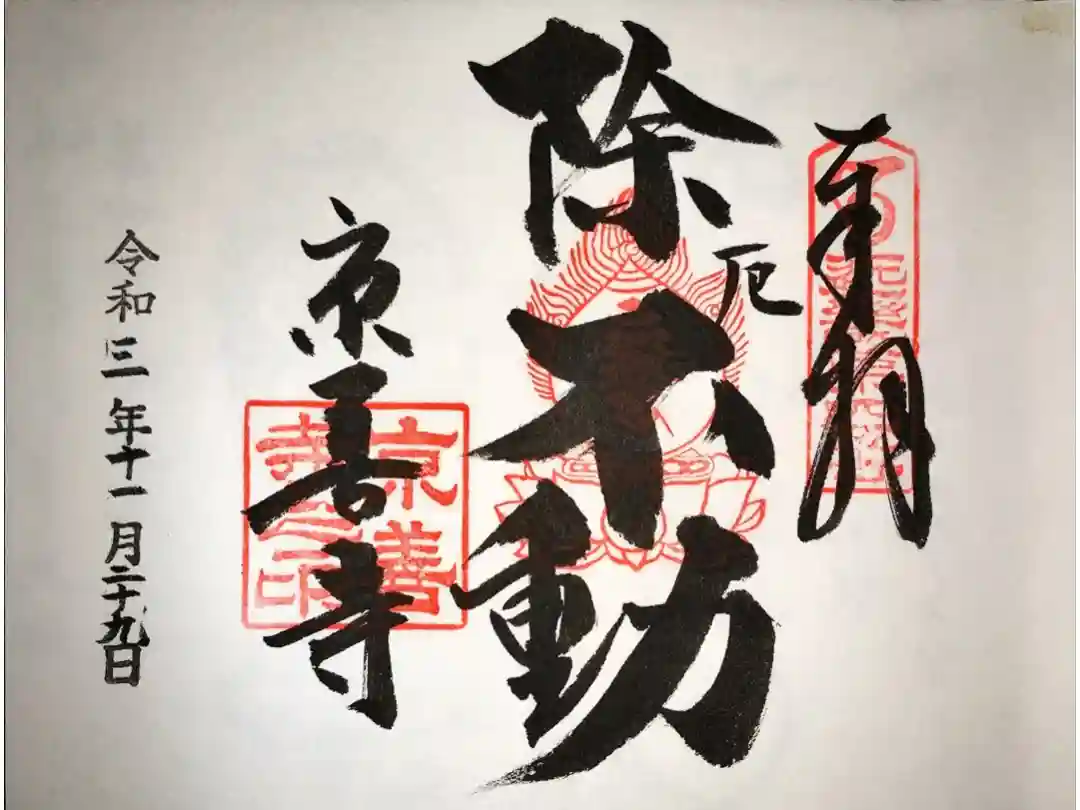 奉拝
除厄
不動
京善寺
京善寺之印
令和三年十一月二十九日